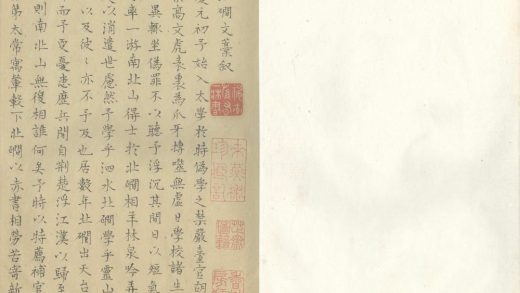 磵文藁叙
慶元初予始入太學於時偽學之禁嚴臺官胡
高文虎表裏為爪牙搏噬無虛日學校諸生
異輒坐偽罪不以聽予浮沉其間日以短氣
率一游南北山得士於北磵相羊林泉吟弄
以消遣世慮然予學乎泗水北磵學乎靈山
以及彼〻亦不予及也居數年北磵出天台
而予更憂患塵兵間自荆楚浮江漢以歸至
則南北山無復相誰何矣予時以時薦補官
第太常寓輦轂下北磵以赤書相勞苦寄新